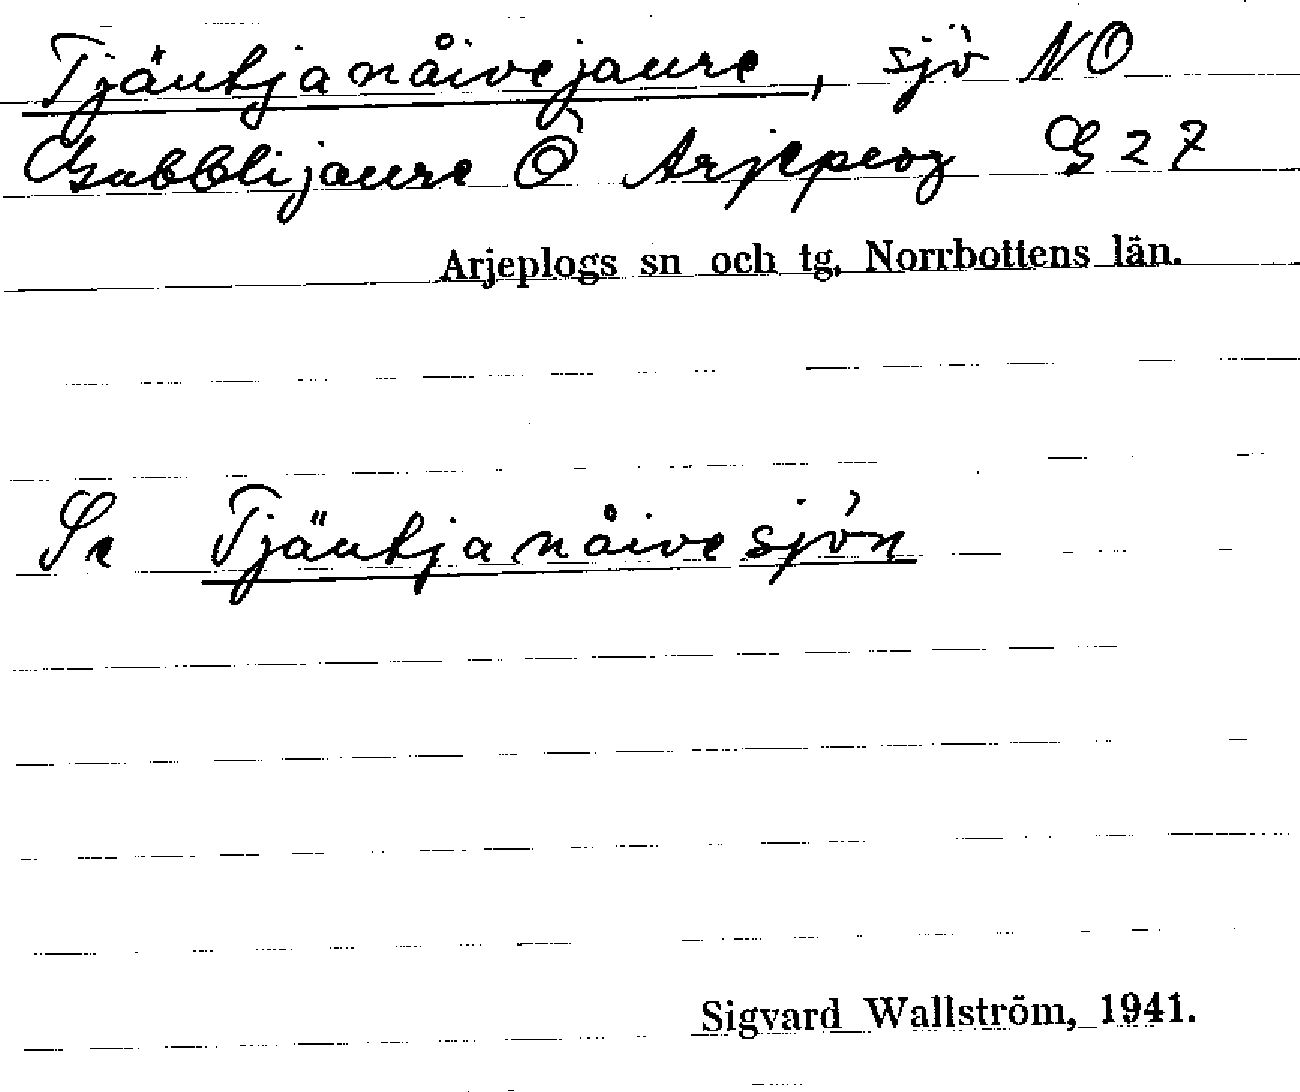 Tjäutjanåivejaure, sjö NO
Gubblijaure Ö Arjeplog G 27
Arjeplogs sn och tg. Norrbottens län.
Se Tjäutjanåivesjön
Sigvard Wallström, 1941.